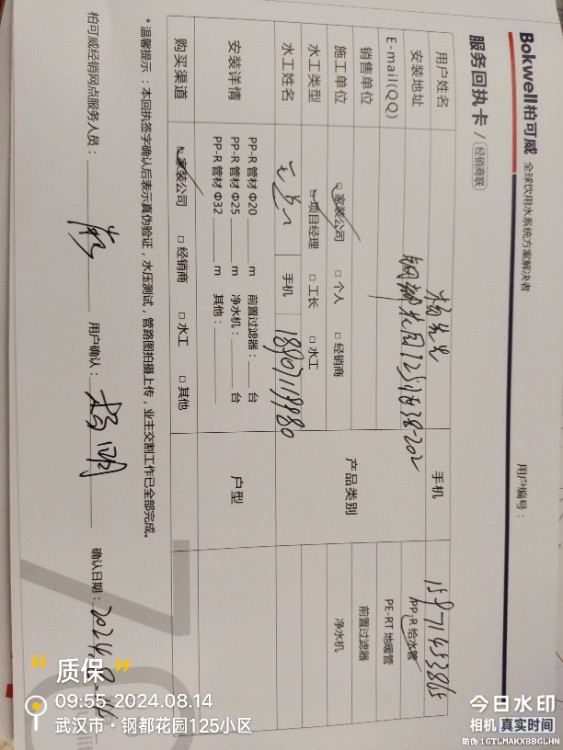 Bokwell柏可威 全球饮用水系统方案解决者
用户编号：
服务回执卡 / 经销商联
用户姓名 手机
安装地址 钢都花园125 28-202
E-mail(QQ) PP-R 给水管
销售单位 产品类别 PE-RT 地暖管
施工单位 家装公司 个人 经销商 前置过滤器
水工类型 项目经理 工长 水工 净水机
水工姓名 手机
安装详情 PP-R 管材 Φ20 m 前置过滤器： 台 户型
PP-R 管材 Φ25 m 净水机： 台
PP-R 管材 Φ32 m 其他：
购买渠道 家装公司 经销商 水工 其他
*温馨提示：本回执签字确认后表示真伪验证，水压测试，管路图拍摄上传，业主交割工作已全部完成。
柏可威经销网点服务人员： 用户确认： 确认日期：2024.8.14
质保
09:55 2024.08.14
武汉市·钢都花园125小区
今日水印
相机 真实时间
防伪 1GTLMAKXBBGLHN